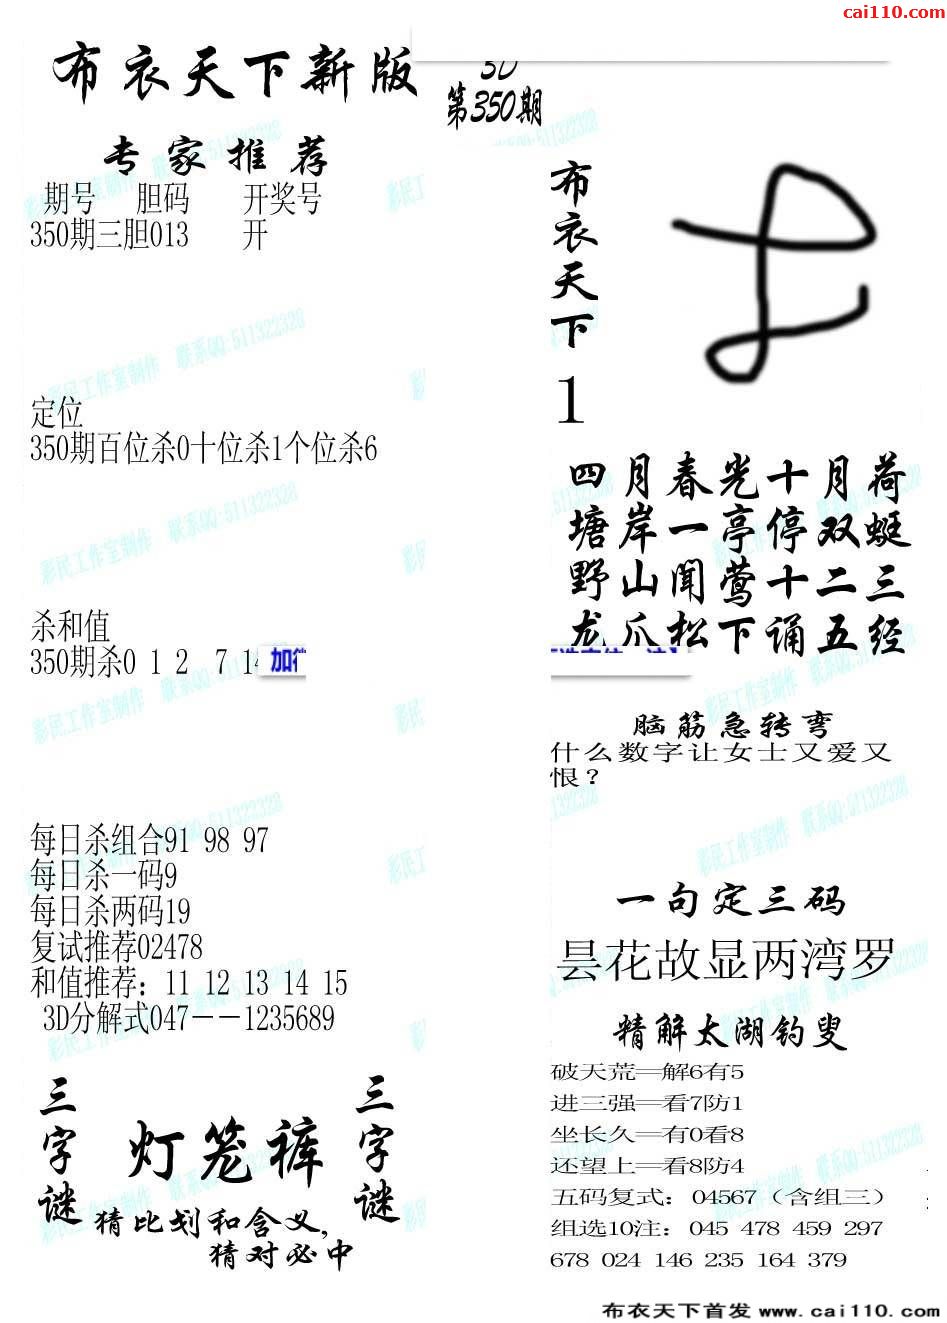 cai110.com
布衣天下新版
3D
第350期
专家推荐
期号 胆码 开奖号
350期三胆013 开
定位
350期百位杀0十位杀1个位杀6
杀和值
350期杀0 1 2 7 14
每日杀组合91 98 97
每日杀一码9
每日杀两码19
复试推荐02478
和值推荐：11 12 13 14 15
3D分解式047－－1235689
三字谜
灯笼裤
三字谜
猜比划和含义,
猜对必中
布衣天下
1
四月春光十月荷
塘岸一亭停双蜓
野山闻莺十二三
龙爪松下诵五经
脑筋急转弯
什么数字让女士又爱又
恨？
一句定三码
昙花故显两湾罗
精解太湖钓叟
破天荒═解6有5
进三强═看7防1
坐长久═有0看8
还望上═看8防4
五码复式：04567（含组三）
组选10注：045 478 459 297
678 024 146 235 164 379
彩民工作室制作 联系QQ:511322328
布衣天下首发 www.cai110.com